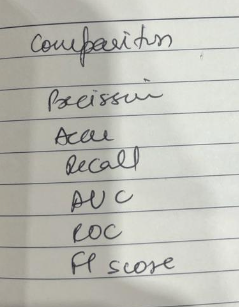 Comparition
Precission
Accu
Recall
AUC
ROC
F1 score